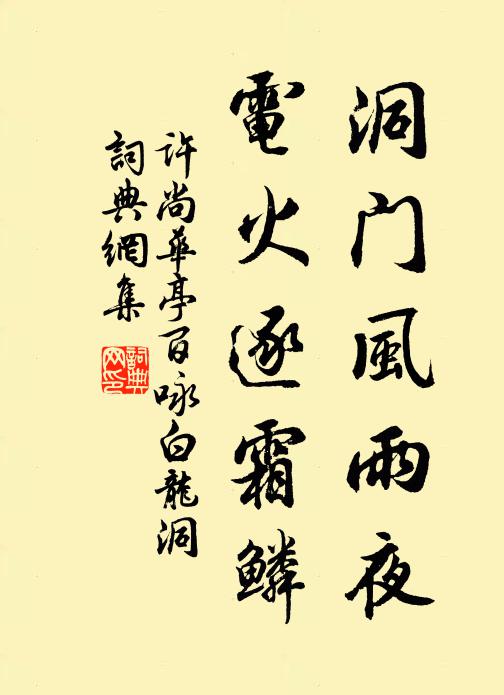 洞门風雨夜
電火逐霜鱗
許尚華亭百咏白龍洞
詞典網集
詞典
网印